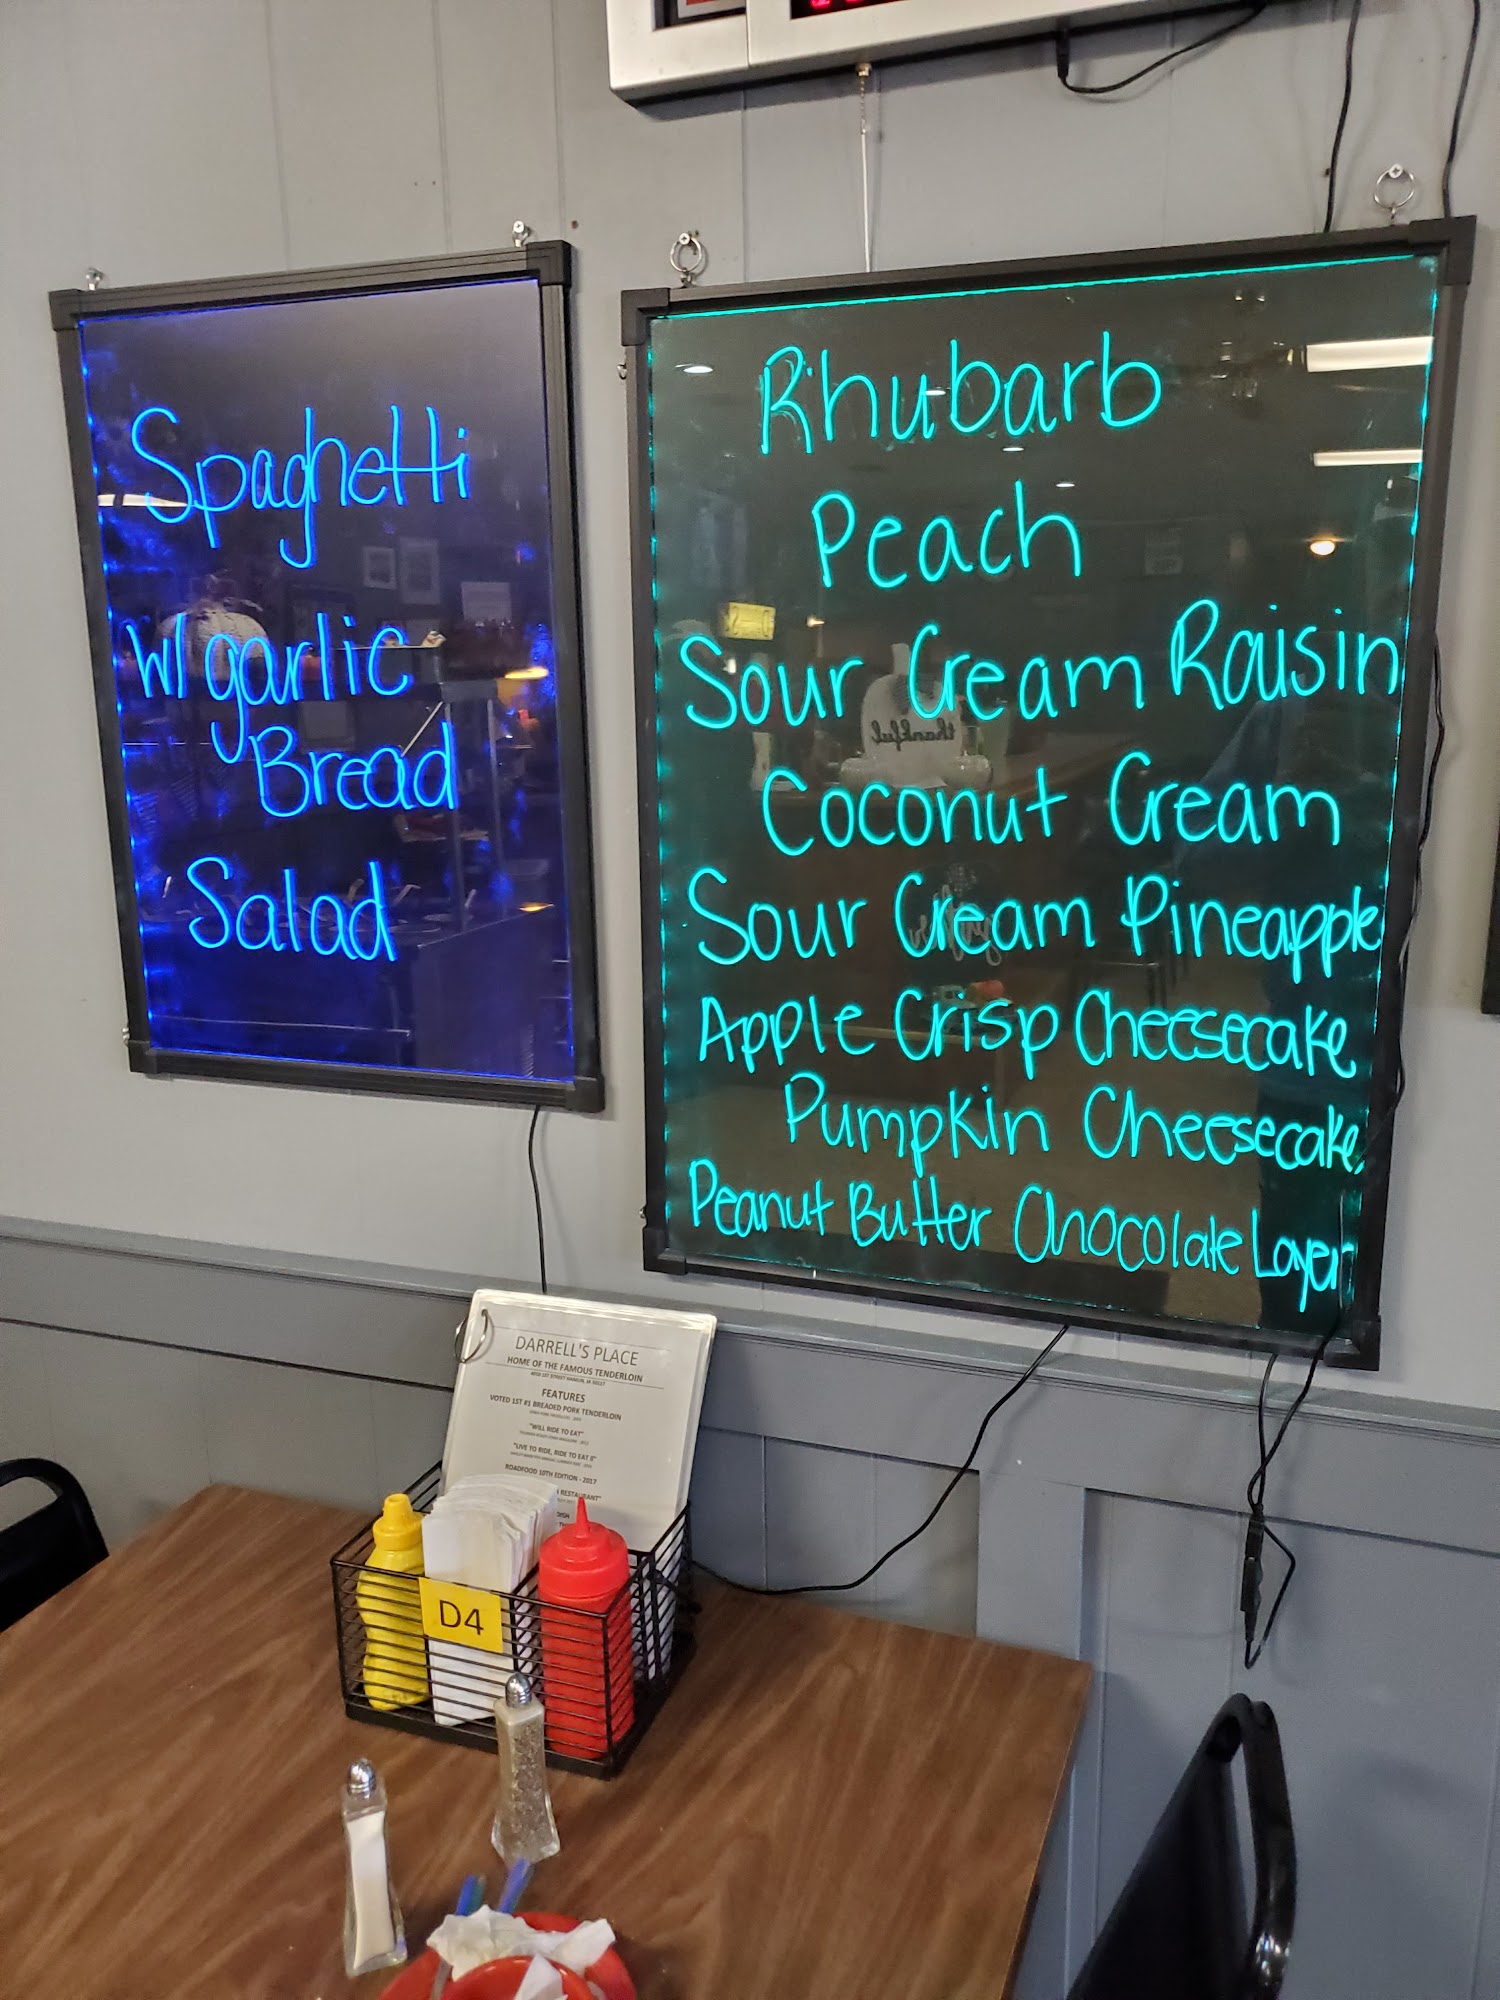 Spaghetti
w/garlic
Bread
Salad
Rhubarb
Peach
Sour Cream Raisin
Coconut Cream
Sour Cream Pineapple
Apple Crisp Cheesecake
Pumpkin Cheesecake
Peanut Butter Chocolate Layer
thankful
DARRELL'S PLACE
HOME OF THE FAMOUS TENDERLOIN
FEATURES
VOTED 1ST #1 BREADED PORK TENDERLOIN
"WILL RIDE TO EAT"
"LIVE TO RIDE, RIDE TO EAT II"
ROADFOOD 10TH EDITION - 2017
RESTAURANT"
D4